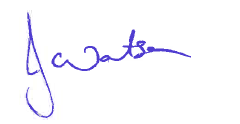 J Watson